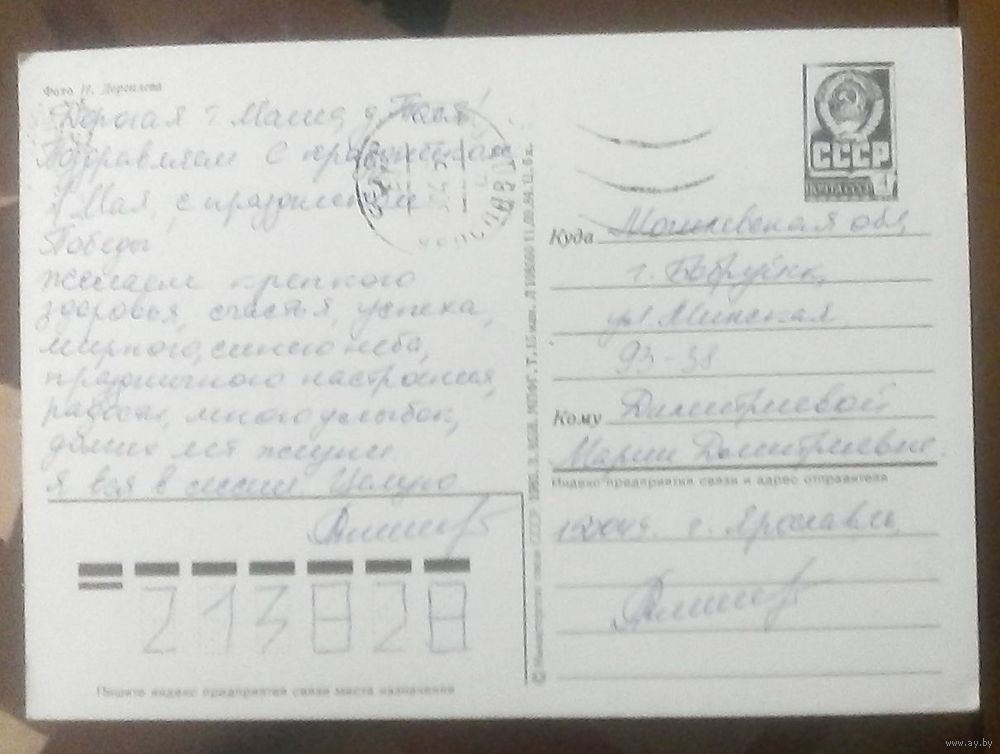 Фото И. Дергилева
Дорогая т. Маша, д. Толя!
Поздравляем с праздником
1 Мая, с праздником
Победы
желаем крепкого
здоровья, счастья, успеха,
мирного, синего неба,
праздничного настроения,
радости, много улыбок,
долгих лет жизни.
Я вся в сессии. Целую
213828
Пишите индекс предприятия связи места назначения
© Министерство связи СССР 1985. З.
СССР
ПОЧТА
Куда Могилевская обл,
г. Бобруйск,
ул. Минская
93-38
Кому Димитриевой
Марии Дмитриевне.
Индекс предприятия связи и адрес отправителя
г. Ярославль,
www.ay.by